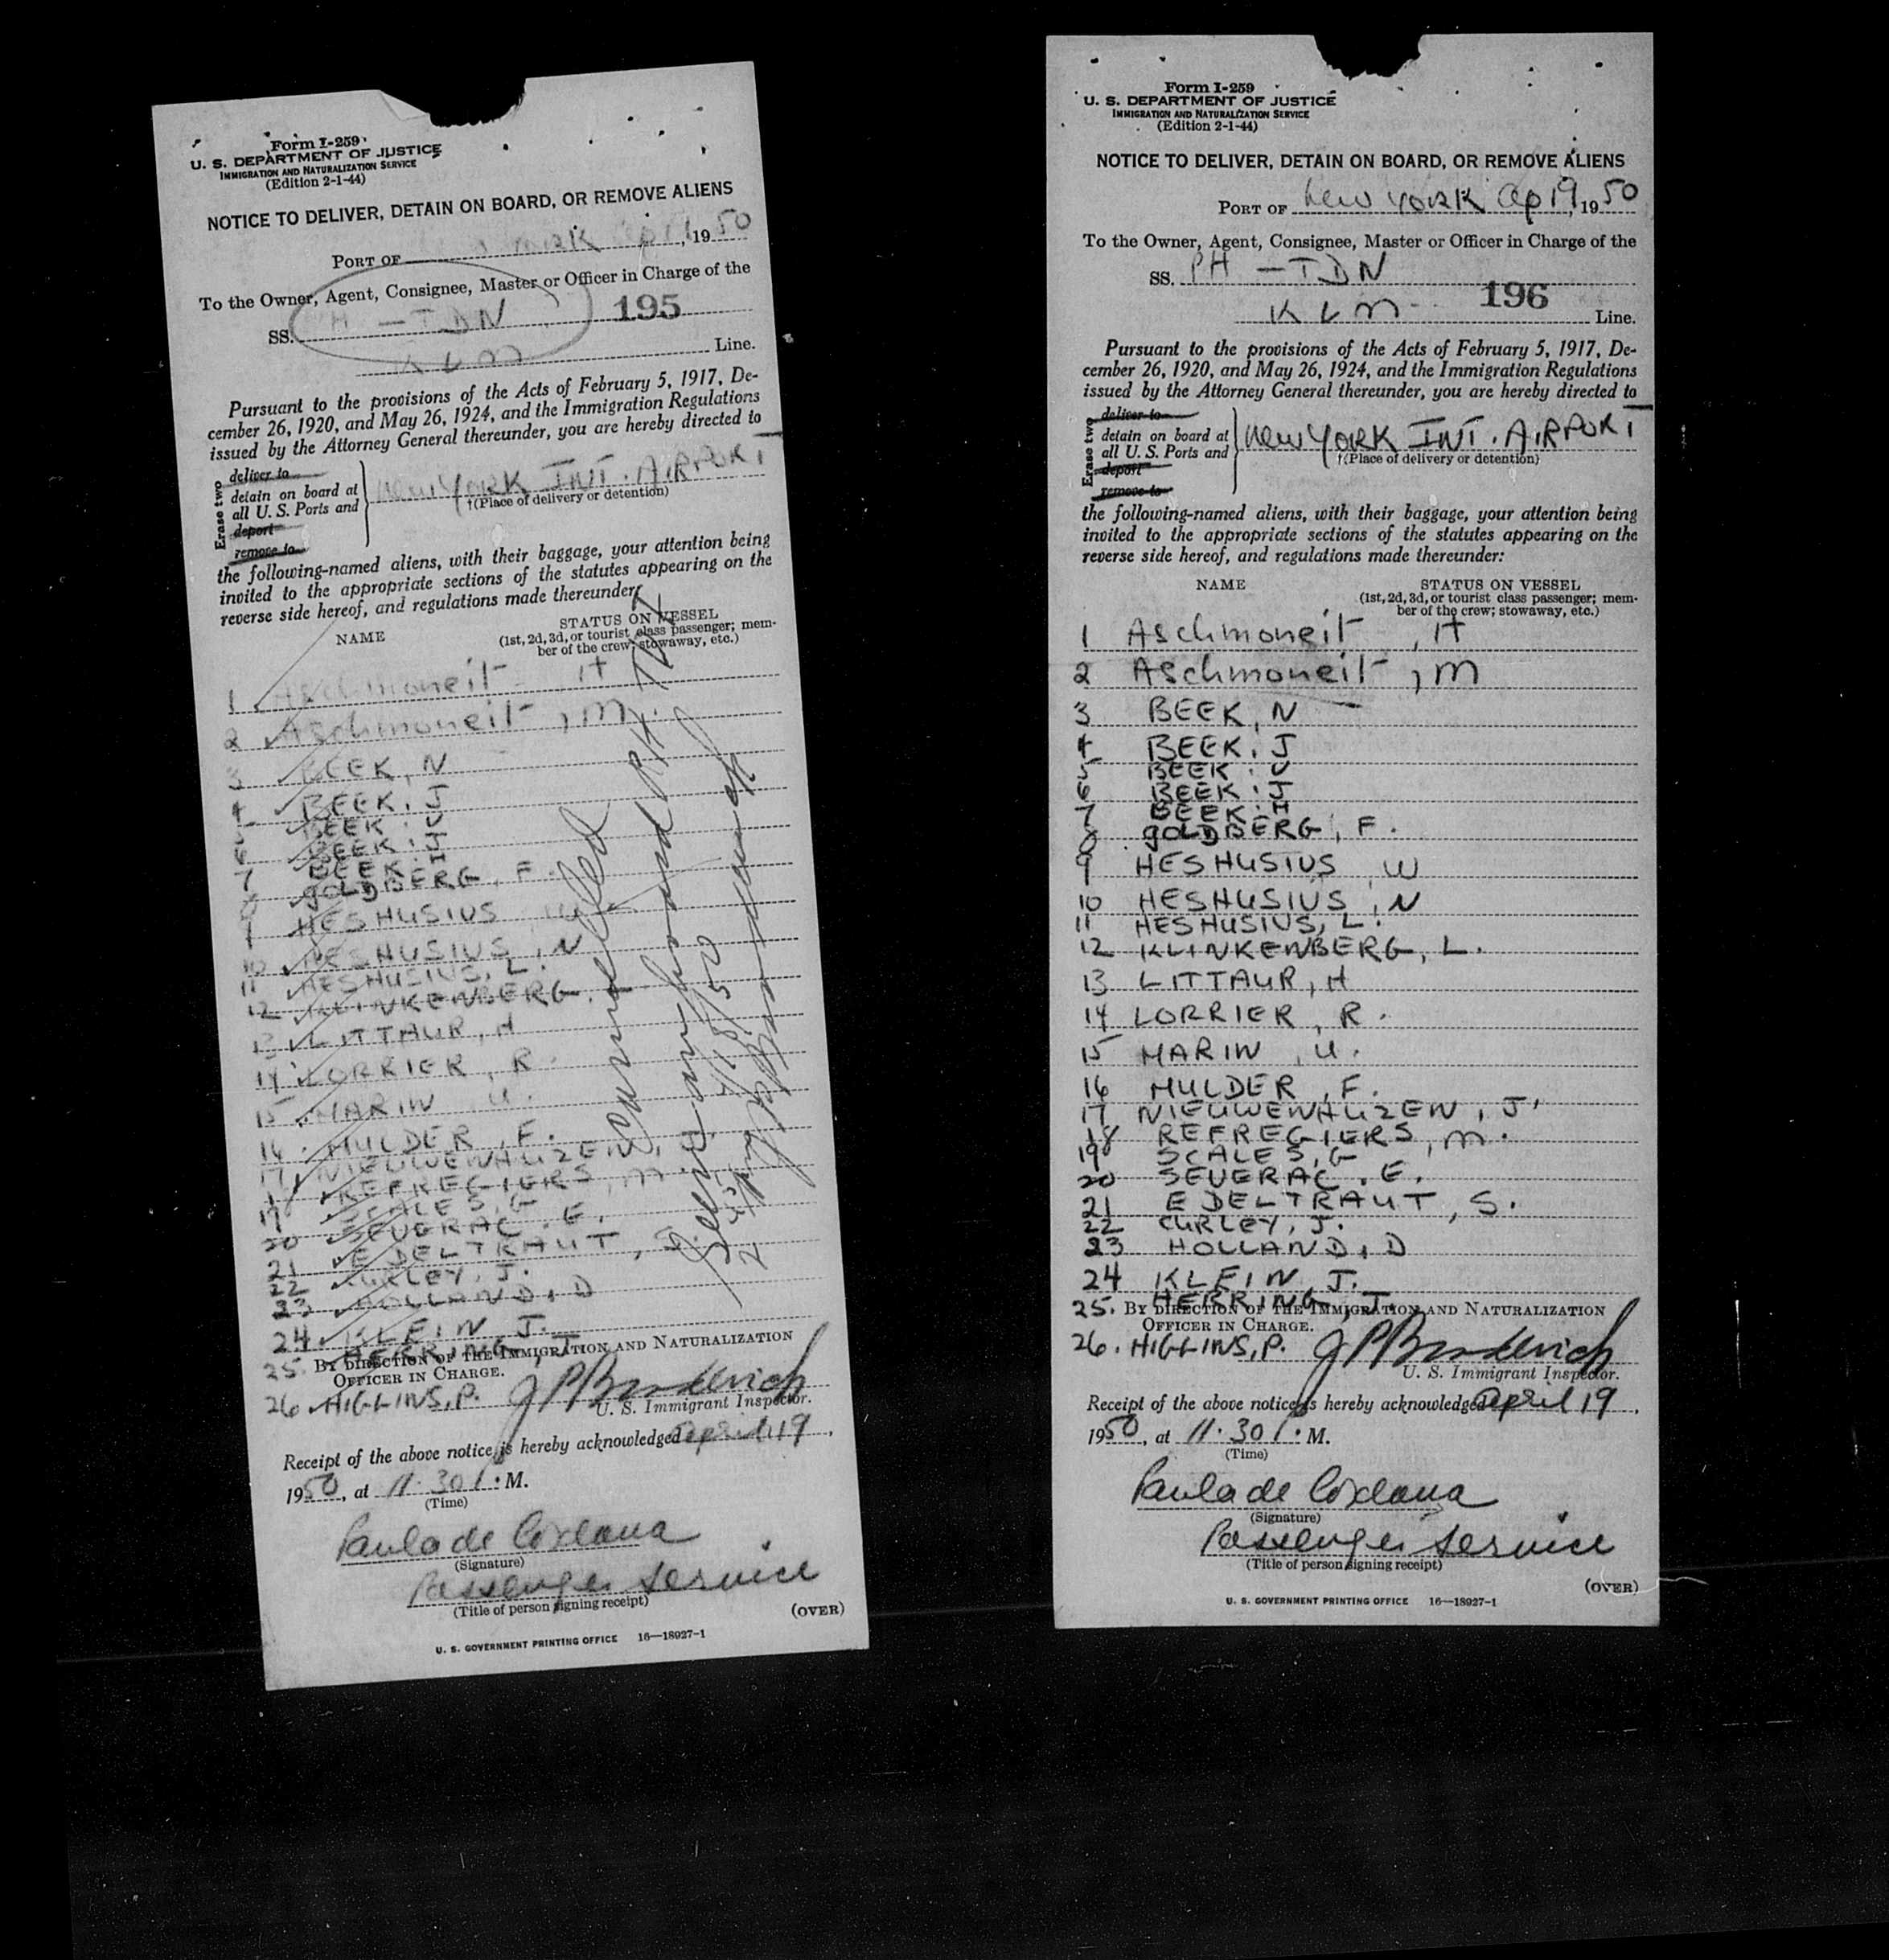 Form I-259
U. S. DEPARTMENT OF JUSTICE
IMMIGRATION AND NATURALIZATION SERVICE
(Edition 2-1-44)
NOTICE TO DELIVER, DETAIN ON BOARD, OR REMOVE ALIENS
PORT OF YORK Ap 19, 1950
To the Owner, Agent, Consignee, Master or Officer in Charge of the
SS. PH - TDN 195
KLM Line.
Pursuant to the provisions of the Acts of February 5, 1917, De-
cember 26, 1920, and May 26, 1924, and the Immigration Regulations
issued by the Attorney General thereunder, you are hereby directed to
Erase two
deliver to
detain on board at
all U. S. Ports and
deport
remove to
New YORK INT. AIRPORT
†(Place of delivery or detention)
the following-named aliens, with their baggage, your attention being
invited to the appropriate sections of the statutes appearing on the
reverse side hereof, and regulations made thereunder:
NAME STATUS ON VESSEL
(1st, 2d, 3d, or tourist class passenger; mem-
ber of the crew; stowaway, etc.)
1 Aschmoneit, H
2 Aschmoneit, M
3 BEEK, N
4 BEEK, J
5 BEEK, J
6 BEEK, J
7 BEEK, H
8 GOLDBERG, F.
9 HESHUSIUS W
10 HESHUSIUS, N
11 HESHUSIUS, L.
12 KLINKENBERG, L.
13 LITTAUR, H
14 LORRIER, R.
15 MARIN, U.
16 MULDER, F.
17 NIEUWENHUIZEN, J.
18 REFREGIERS, M.
19 SCALES, G
20 SEVERAC, E.
21 EDELTRAUT, S.
22 CURLEY, J.
23 HOLLAND, D
24 KLEIN, J.
25. HERRING, J.
BY DIRECTION OF THE IMMIGRATION AND NATURALIZATION
OFFICER IN CHARGE.
26 HIGGINS, P.
U. S. Immigrant Inspector.
Receipt of the above notice is hereby acknowledged April 19,
1950, at 11.30 P. M.
(Time)
Paula de
(Signature)
Passenger Service
(Title of person signing receipt)
(OVER)
U. S. GOVERNMENT PRINTING OFFICE 16—18927-1
Cancelled
Form I-259
U. S. DEPARTMENT OF JUSTICE
IMMIGRATION AND NATURALIZATION SERVICE
(Edition 2-1-44)
NOTICE TO DELIVER, DETAIN ON BOARD, OR REMOVE ALIENS
PORT OF New YORK Ap 19, 1950
To the Owner, Agent, Consignee, Master or Officer in Charge of the
SS. PH - TDN 196
KLM Line.
Pursuant to the provisions of the Acts of February 5, 1917, De-
cember 26, 1920, and May 26, 1924, and the Immigration Regulations
issued by the Attorney General thereunder, you are hereby directed to
Erase two
deliver to
detain on board at
all U. S. Ports and
deport
remove to
New YORK INT. AIRPORT
†(Place of delivery or detention)
the following-named aliens, with their baggage, your attention being
invited to the appropriate sections of the statutes appearing on the
reverse side hereof, and regulations made thereunder:
NAME STATUS ON VESSEL
(1st, 2d, 3d, or tourist class passenger; mem-
ber of the crew; stowaway, etc.)
1 Aschmoneit, H
2 Aschmoneit, M
3 BEEK, N
4 BEEK, J
5 BEEK, J
6 BEEK, J
7 BEEK, H
8 GOLDBERG, F.
9 HESHUSIUS W
10 HESHUSIUS, N
11 HESHUSIUS, L.
12 KLINKENBERG, L.
13 LITTAUR, H
14 LORRIER, R.
15 MARIN, U.
16 MULDER, F.
17 NIEUWENHUIZEN, J.
18 REFREGIERS, M.
19 SCALES, G
20 SEVERAC, E.
21 EDELTRAUT, S.
22 CURLEY, J.
23 HOLLAND, D
24 KLEIN, J.
25. HERRING, J.
BY DIRECTION OF THE IMMIGRATION AND NATURALIZATION
OFFICER IN CHARGE.
26. HIGGINS, P.
U. S. Immigrant Inspector.
Receipt of the above notice is hereby acknowledged April 19,
1950, at 11.30 P. M.
(Time)
Paula de
(Signature)
Passenger Service
(Title of person signing receipt)
(OVER)
U. S. GOVERNMENT PRINTING OFFICE 16—18927-1